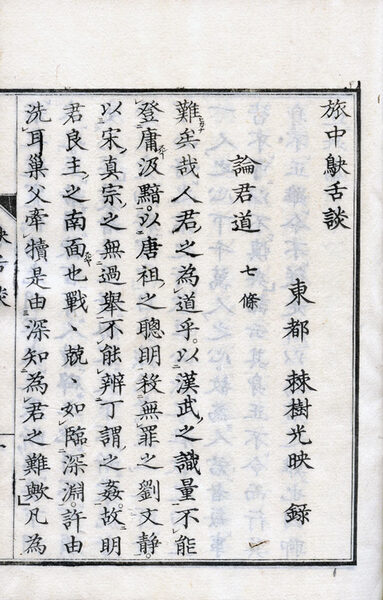 旅中鴃舌談
東都 棘樹光映 錄
論君道 七條
難矣哉人君之為道乎。以漢武之識量不能
登庸汲黯。以唐祖之聰明殺無罪之劉文靜。
以宋真宗之無過舉不能辨丁謂之姦。故明
君良主之南面也戰、兢、如臨深淵。許由
洗耳巢父牽犢是由深知為君之難歟凡為